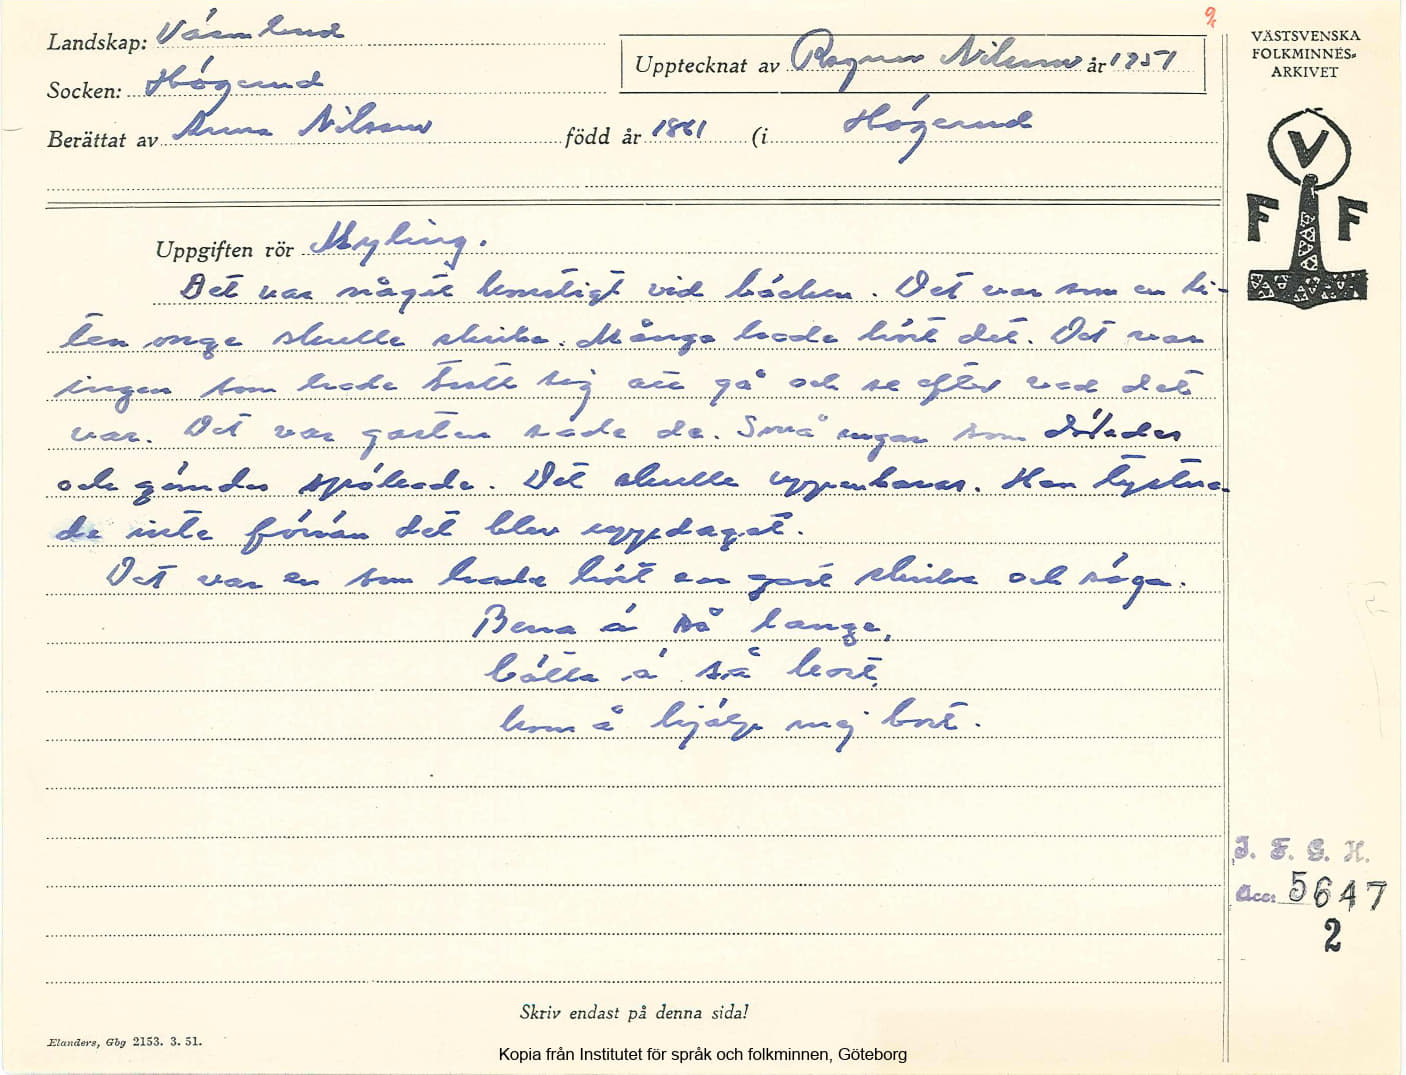 Landskap: Värmland
Socken: Högerud
Berättat av Anna Nilsson född år 1861 (i Högerud
Upptecknat av Ragnar Nilsson år 1951
VÄSTSVENSKA
FOLKMINNES-
ARKIVET
V
F F
Uppgiften rör Myling.
Det var något konstigt vid bäcken. Det var som en li-
ten onge skulle skrika. Många hade hört det. Det var
ingen som hade trott sig att gå och se efter vad det
var. Det var gasten sade de. Små ungar som dödades
och gömdes spökade. Det skulle uppenbaras. Han tystna-
de inte förrän det blev uppdagat.
Det var en som hade hört en gast skrika och säga:
Bena ä så lange,
bätta ä så kort,
kom å hjälp mej bort.
I. F. G. H.
Acc: 5647
2
Skriv endast på denna sida!
Elanders, Gbg 2153. 3. 51.
Kopia från Institutet för språk och folkminnen, Göteborg